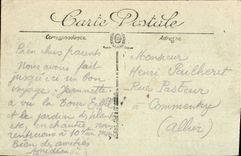 Carte Postale
Correspondance
Adresse
Bien chers parents
Nous avons fait
jusqu'ici un bon
voyage. Jeannette
a vu la Tour Eiffel
et le jardin des plantes
enchantée nous
rentrons à 10h
Bien des amitiés
Monsieur
Henri Pailheret
Rue Pasteur
à Commentry
(Allier)